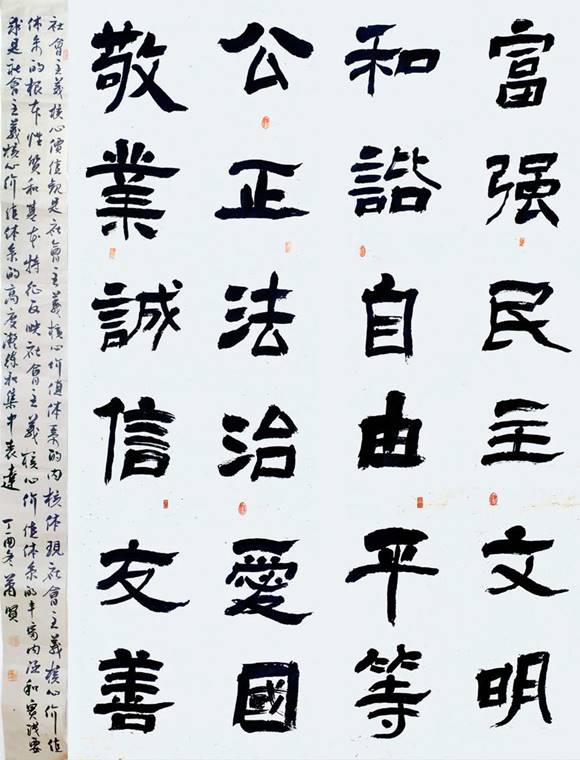 富强民主文明
和諧自由平等
公正法治愛國
敬業誠信友善
社會主義核心價值觀是社會主義核心价值体系的内核体現社會主義核心价值
体系的根本性質和基本特征反映社會主義核心价值体系的丰富内涵和實践要
求是社會主義核心价值体系的高度凝練和集中表達 丁酉冬